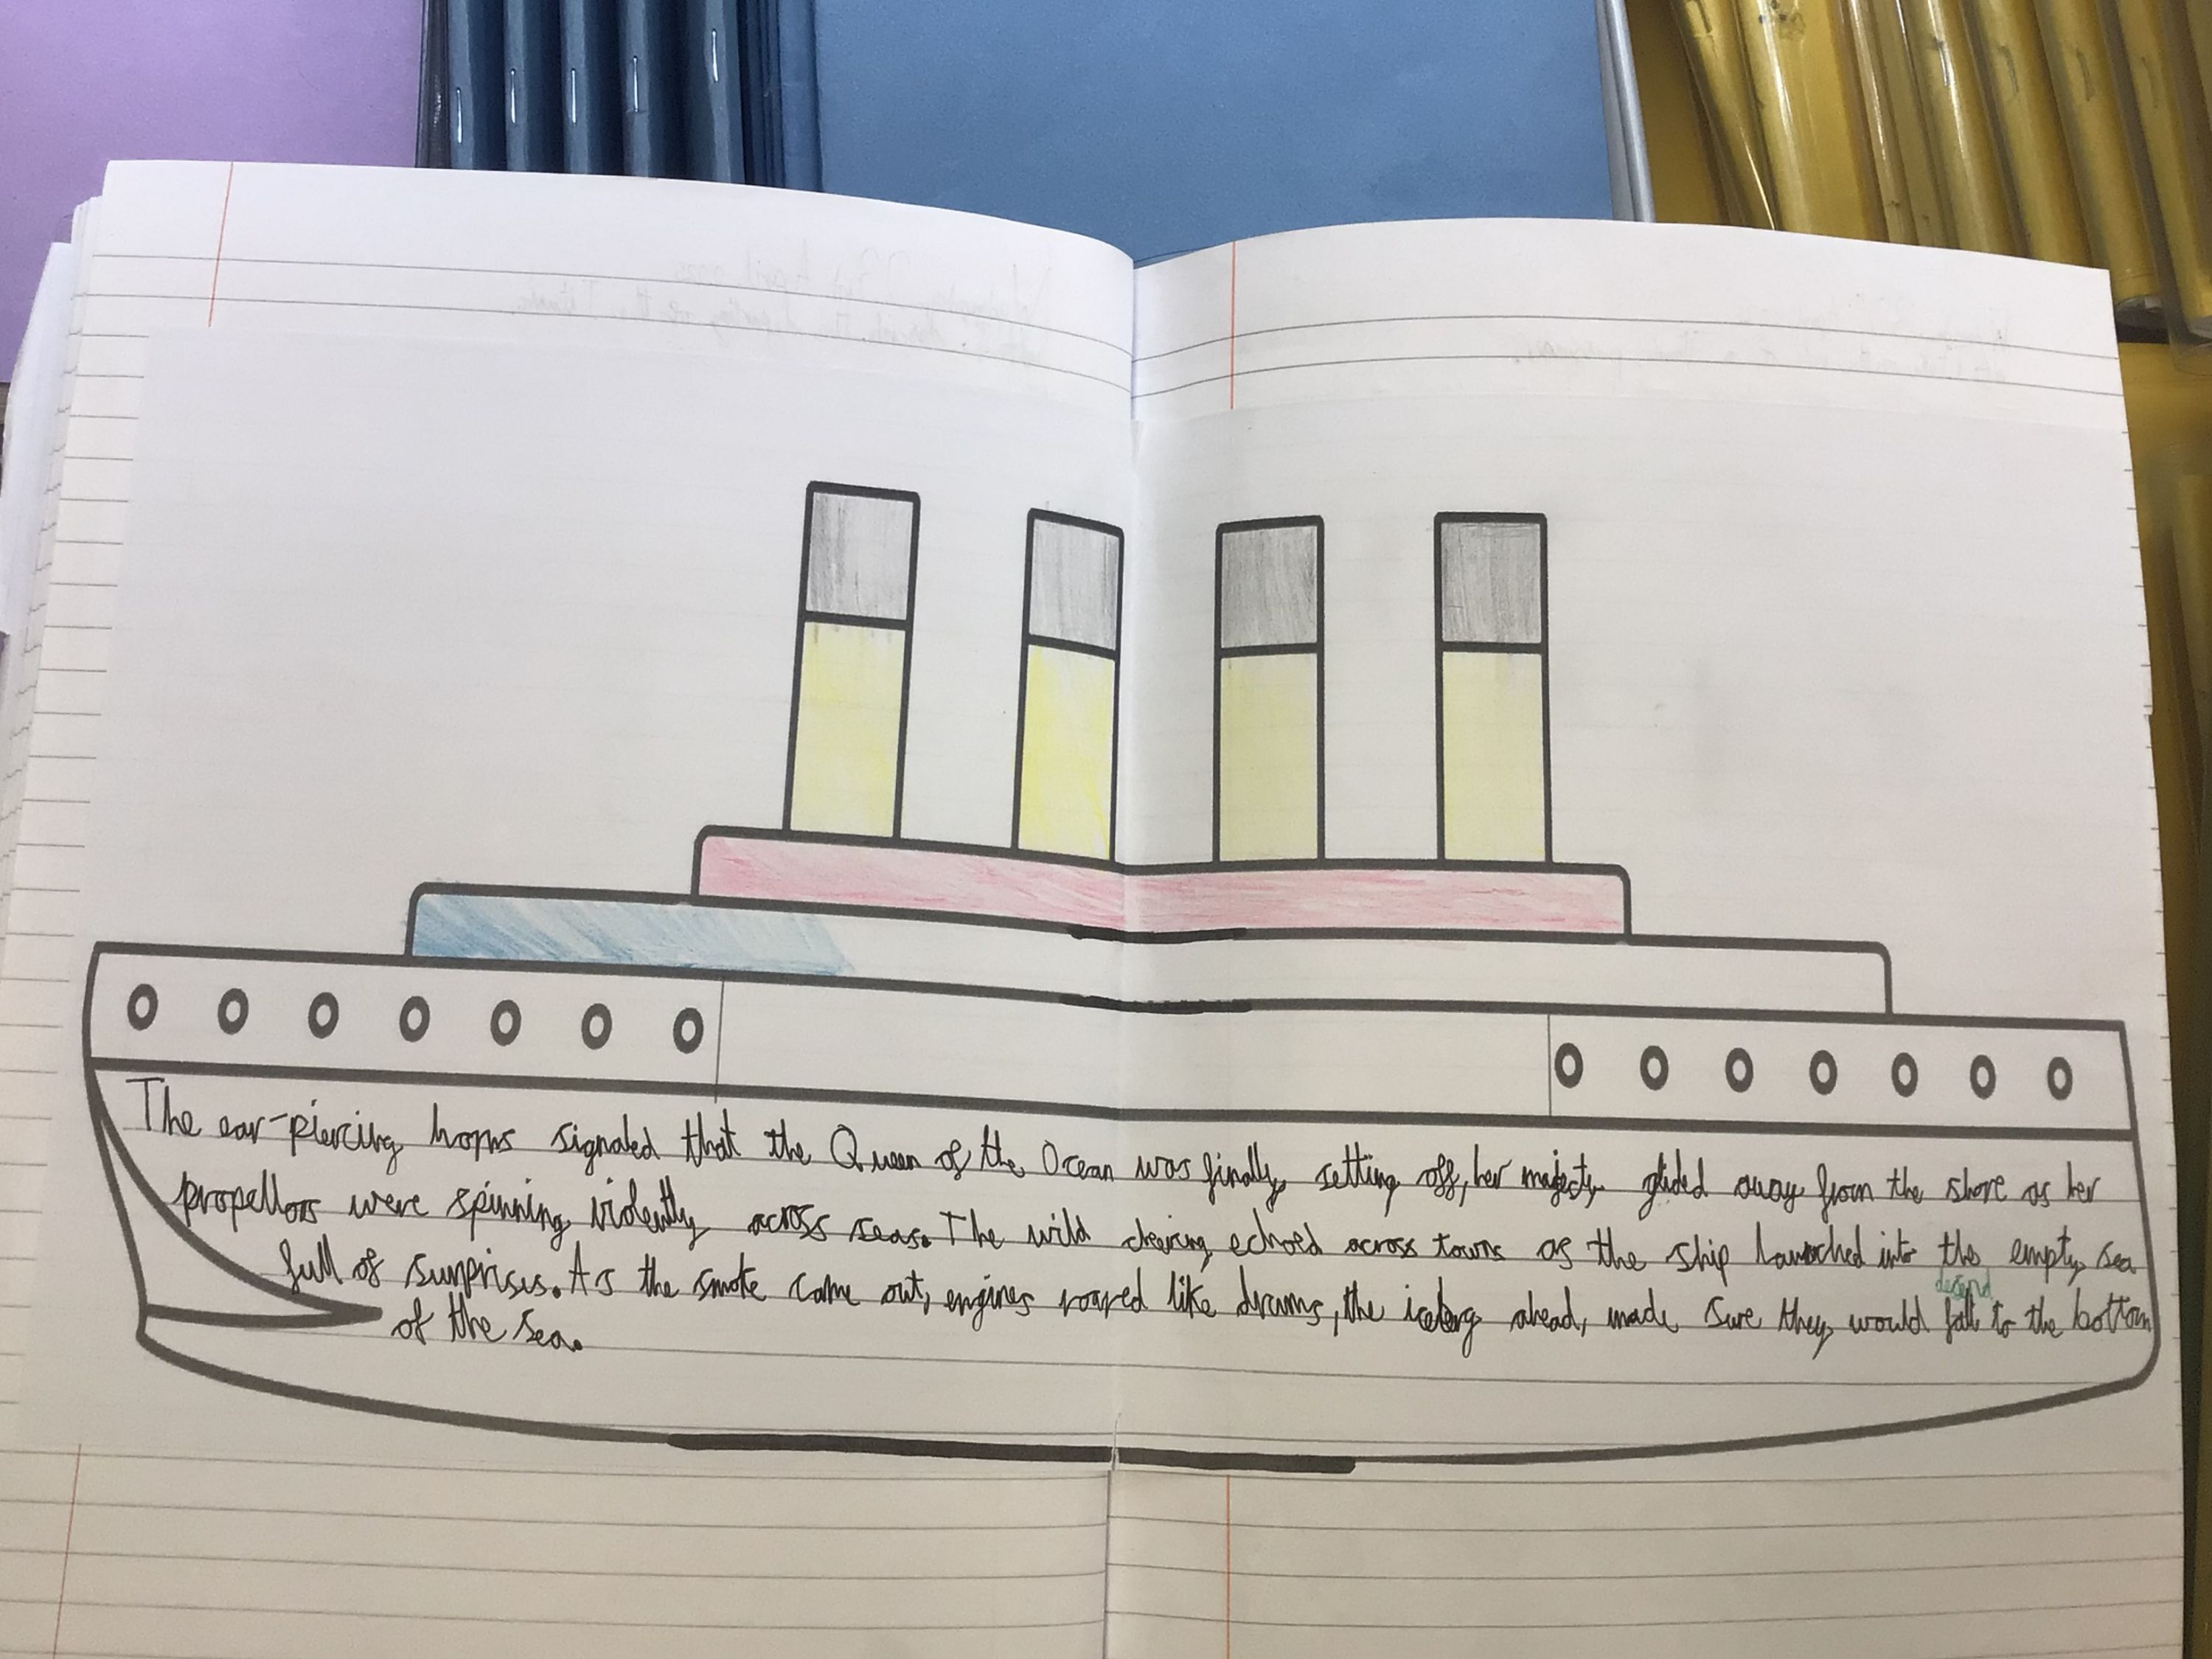 The ear-piercing horns signaled that the Queen of the Ocean was finally setting off, her majesty glided away from the shore as her
propellors were spinning violently across seas. The wild cheering echoed across towns as the ship launched into the empty sea
descend
full of surprises. As the smoke came out, engines roared like drums, the iceberg ahead, made sure they would fall to the bottom
of the sea.